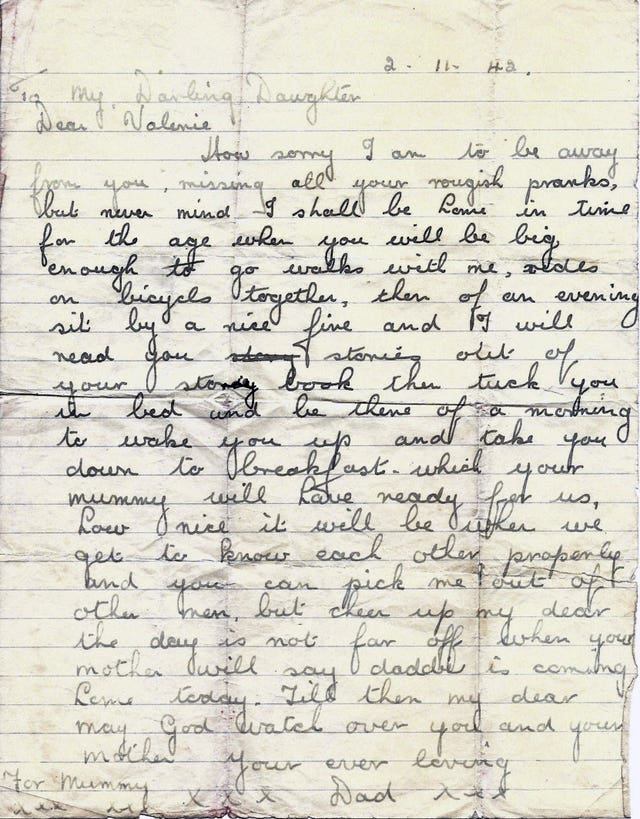 2 - 11 - 42.
To My Darling Daughter
Dear Valerie
How sorry I am to be away
from you, missing all your rougish pranks,
but never mind I shall be home in time
for the age when you will be big
enough to go walks with me, rides
on bicycls together, then of an evening
sit by a nice fire and I will
read you story stories out of
your story book then tuck you
in bed and be there of a morning
to wake you up and take you
down to breakfast. which your
mummy will have ready for us,
how nice it will be when we
get to know each other properly
and you can pick me out of
other men, but cheer up my dear
the day is not far off when your
mother will say daddie is coming
home today. Till then my dear
may God watch over you and your
mother your ever loving
For Mummy
xxx xxx x x x Dad x x x